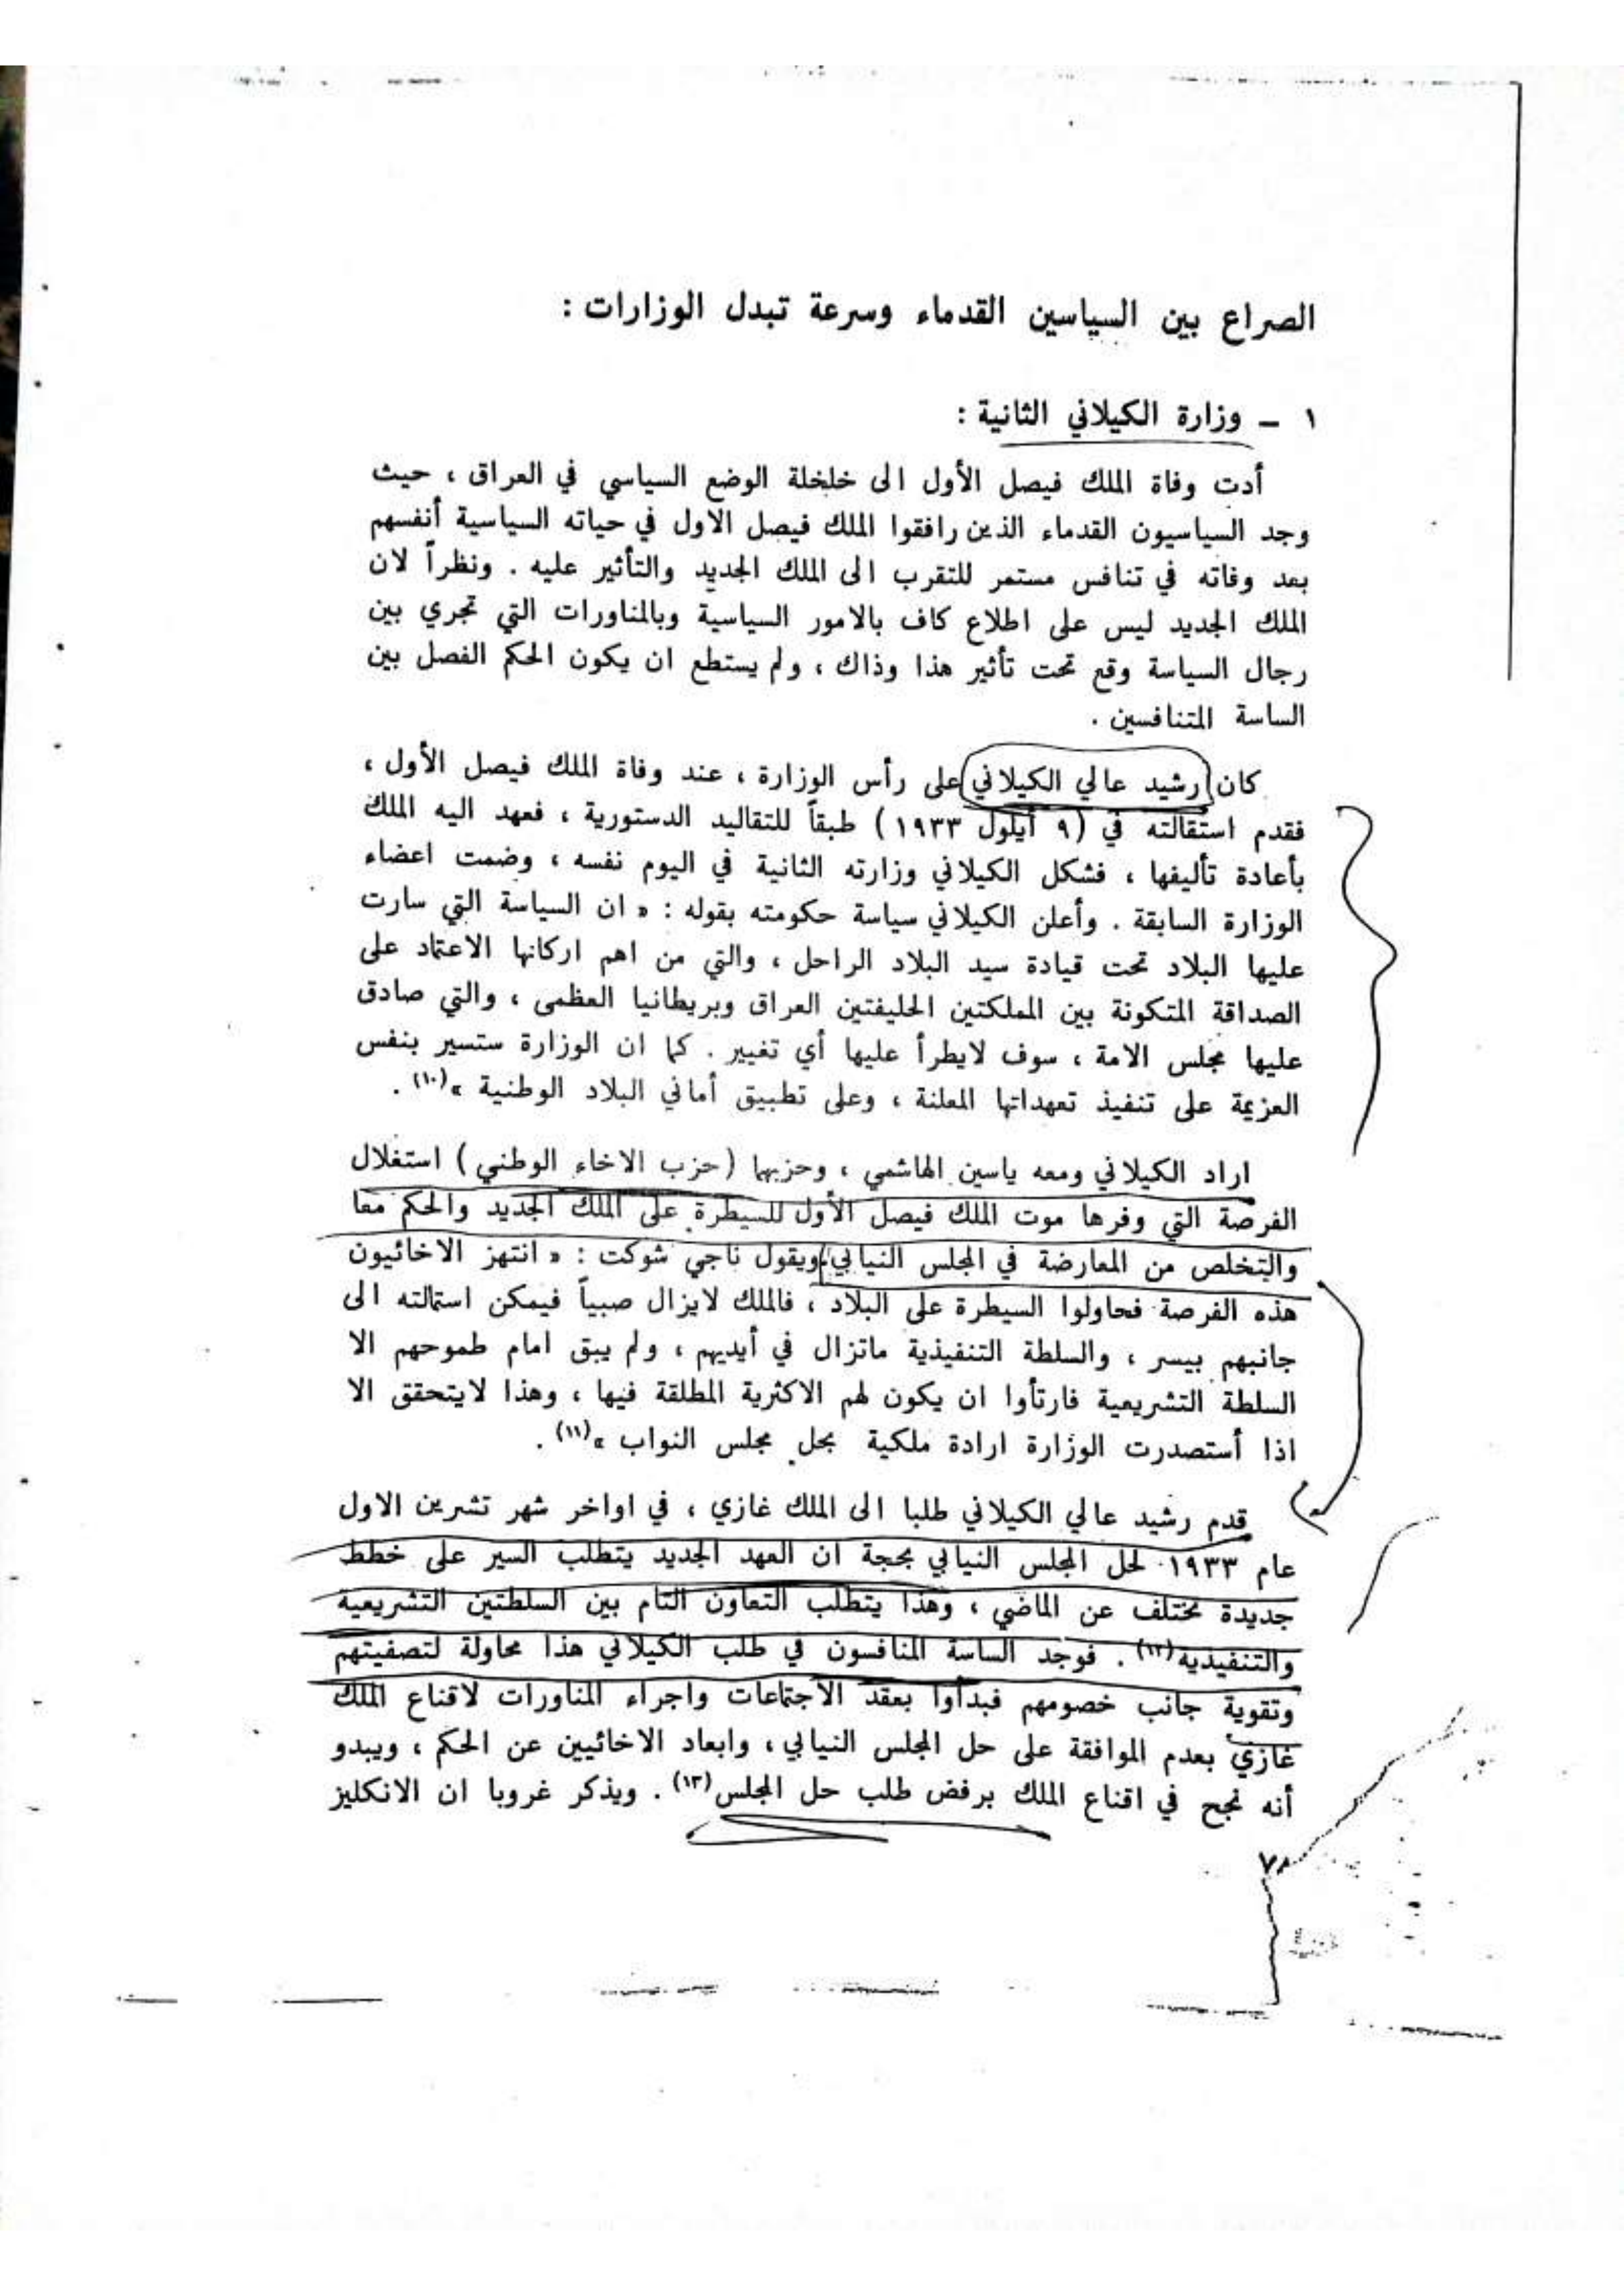 الصراع بين السياسين القدماء وسرعة تبدل الوزارات :
١ ـ وزارة الكيلاني الثانية :
أدت وفاة الملك فيصل الأول الى خلخلة الوضع السياسي في العراق ، حيث
وجد السياسيون القدماء الذين رافقوا الملك فيصل الاول في حياته السياسية أنفسهم
بعد وفاته في تنافس مستمر للتقرب الى الملك الجديد والتأثير عليه . ونظراً لان
الملك الجديد ليس على اطلاع كاف بالامور السياسية وبالمناورات التي تجري بين
رجال السياسة وقع تحت تأثير هذا وذاك ، ولم يستطع ان يكون الحكم الفصل بين
الساسة المتنافسين .
كان رشيد عالي الكيلاني على رأس الوزارة ، عند وفاة الملك فيصل الأول ،
فقدم استقالته في (٩ أيلول ١٩٣٣) طبقاً للتقاليد الدستورية ، فعهد اليه الملك
بأعادة تأليفها ، فشكل الكيلاني وزارته الثانية في اليوم نفسه ، وضمت اعضاء
الوزارة السابقة . وأعلن الكيلاني سياسة حكومته بقوله : « ان السياسة التي سارت
عليها البلاد تحت قيادة سيد البلاد الراحل ، والتي من اهم اركانها الاعتماد على
الصداقة المتكونة بين المملكتين الحليفتين العراق وبريطانيا العظمى ، والتي صادق
عليها مجلس الامة ، سوف لايطرأ عليها أي تغيير . كما ان الوزارة ستسير بنفس
العزيمة على تنفيذ تعهداتها المعلنة ، وعلى تطبيق أماني البلاد الوطنية »(١٠) .
اراد الكيلاني ومعه ياسين الهاشمي ، وحزبهما (حزب الاخاء الوطني) استغلال
الفرصة التي وفرها موت الملك فيصل الأول للسيطرة على الملك الجديد والحكم معا
والتخلص من المعارضة في المجلس النيابي . ويقول ناجي شوكت : « انتهز الاخائيون
هذه الفرصة فحاولوا السيطرة على البلاد ، فالملك لايزال صبياً فيمكن استمالته الى
جانبهم بيسر ، والسلطة التنفيذية ماتزال في أيديهم ، ولم يبق امام طموحهم الا
السلطة التشريعية فارتأوا ان يكون لهم الاكثرية المطلقة فيها ، وهذا لايتحقق الا
اذا أستصدرت الوزارة ارادة ملكية بحل مجلس النواب »(١١) .
قدم رشيد عالي الكيلاني طلبا الى الملك غازي ، في اواخر شهر تشرين الاول
عام ١٩٣٣ لحل المجلس النيابي بحجة ان العهد الجديد يتطلب السير على خطط
جديدة تختلف عن الماضي ، وهذا يتطلب التعاون التام بين السلطتين التشريعية
والتنفيذية(١٢) . فوجد الساسة المنافسون في طلب الكيلاني هذا محاولة لتصفيتهم
وتقوية جانب خصومهم فبدأوا بعقد الاجتماعات واجراء المناورات لاقناع الملك
غازي بعدم الموافقة على حل المجلس النيابي ، وابعاد الاخائيين عن الحكم ، ويبدو
أنه نجح في اقناع الملك برفض طلب حل المجلس(١٣) . ويذكر غروبا ان الانكليز
٧٨